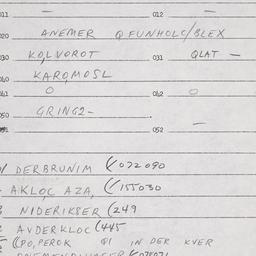 011 — 012
020 ANEMER QFUNHOLC/BLEX
030 KOLVOROT 031 QLAT —
060 KARQMOSL
061 O 062 O
050 GRING2-
052 —
DERBRUNIM (072090
AKLOC AZA, (155030
NIDERIKSER (249
AVDERKLOC (445
(PO,PEROK QI IN DER KVER